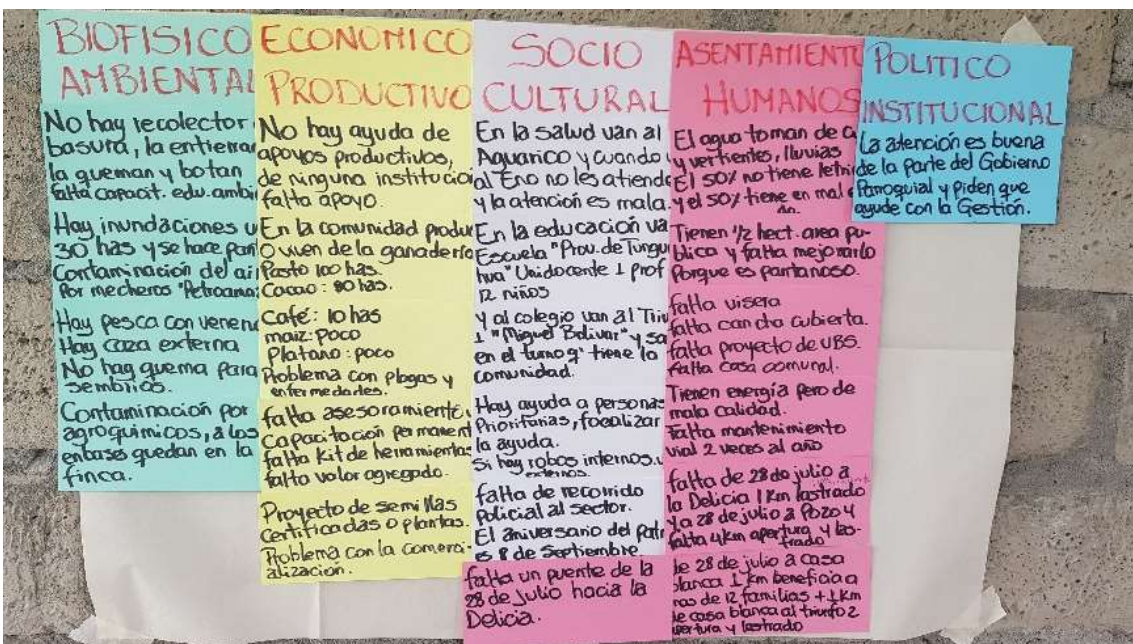 BIOFISICO
AMBIENTAL
No hay recolector
basura, la entierran
la queman y botan
falta capacit. edu. ambi
Hay inundaciones
30 has y se hace pan
Contaminación del air
Por mecheros "Petroama
Hay pesca con veneno
Hay caza externa
No hay quema para
sembrios.
Contaminación por
agroquimicos, a los
enbases quedan en la
finca.
ECONOMICO
PRODUCTIVO
No hay ayuda de
apoyos productivos,
de ninguna institucio
falta apoyo.
En la comunidad produ
O viven de la ganaderia
Pasto 100 has.
Cacao: 80 has.
Café: 10 has
maiz: poco
Platano: poco
Problema con plagas y
enfermedades.
falta asesoramiento
Capacitación permanent
falta kit de herramientas
falta valor agregado.
Proyecto de semillas
certificadas o plantas.
Problema con la comerci-
alización.
SOCIO
CULTURAL
En la salud van al
Aguarico y cuando
al Eno no les atiende
y la atención es mala.
En la educación va
Escuela "Prov. de Tungu
hua" Unidocente 1 prof
12 niños
y al colegio van al Triu
1 "Miguel Bolivar" y sa
en el turno q' tiene la
comunidad.
Hay ayuda a personas
Prioritarias, focalizar
la ayuda.
Si hay robos internos.
externos
falta de recorrido
Policial al sector.
El aniversario del patr
es 8 de Septiembre
falta un puente de la
28 de Julio hacia la
Delicia.
ASENTAMIENTO
HUMANOS
El agua toman de
y vertientes, lluvias
El 50% no tiene letri
y el 50% tiene en mal
do.
Tienen 1/2 hect. area pu-
blica y falta mejorarlo
Porque es pantanoso.
falta visera
falta cancha cubierta.
falta proyecto de UBS.
falta casa comunal.
Tienen energía pero de
mala calidad.
Falta mantenimiento
vial 2 veces al año
falta de 28 de julio a
la Delicia 1 Km lastrado
y la 28 de julio a Pozo 4
falta 4 km apertura y las-
trado
de 28 de julio a casa
blanca 1 km beneficia a
mas de 12 familias + 1 Km
de casa blanca al triunfo 2
apertura y lastrado
POLITICO
INSTITUCIONAL
La atención es buena
de la parte del Gobierno
Parroquial y piden que
ayude con la Gestión.